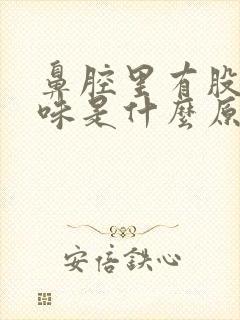 鼻腔里有股
味是什麼原
安倍鉄心